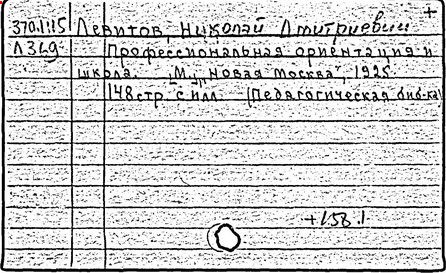 +
370.1115 Левитов, Николай Дмитриевич
Л349 Профессиональная ориентация и
школа. М., "Новая Москва", 1925.
148 стр. с илл. (Педагогическая биб-ка)
+1.58.1